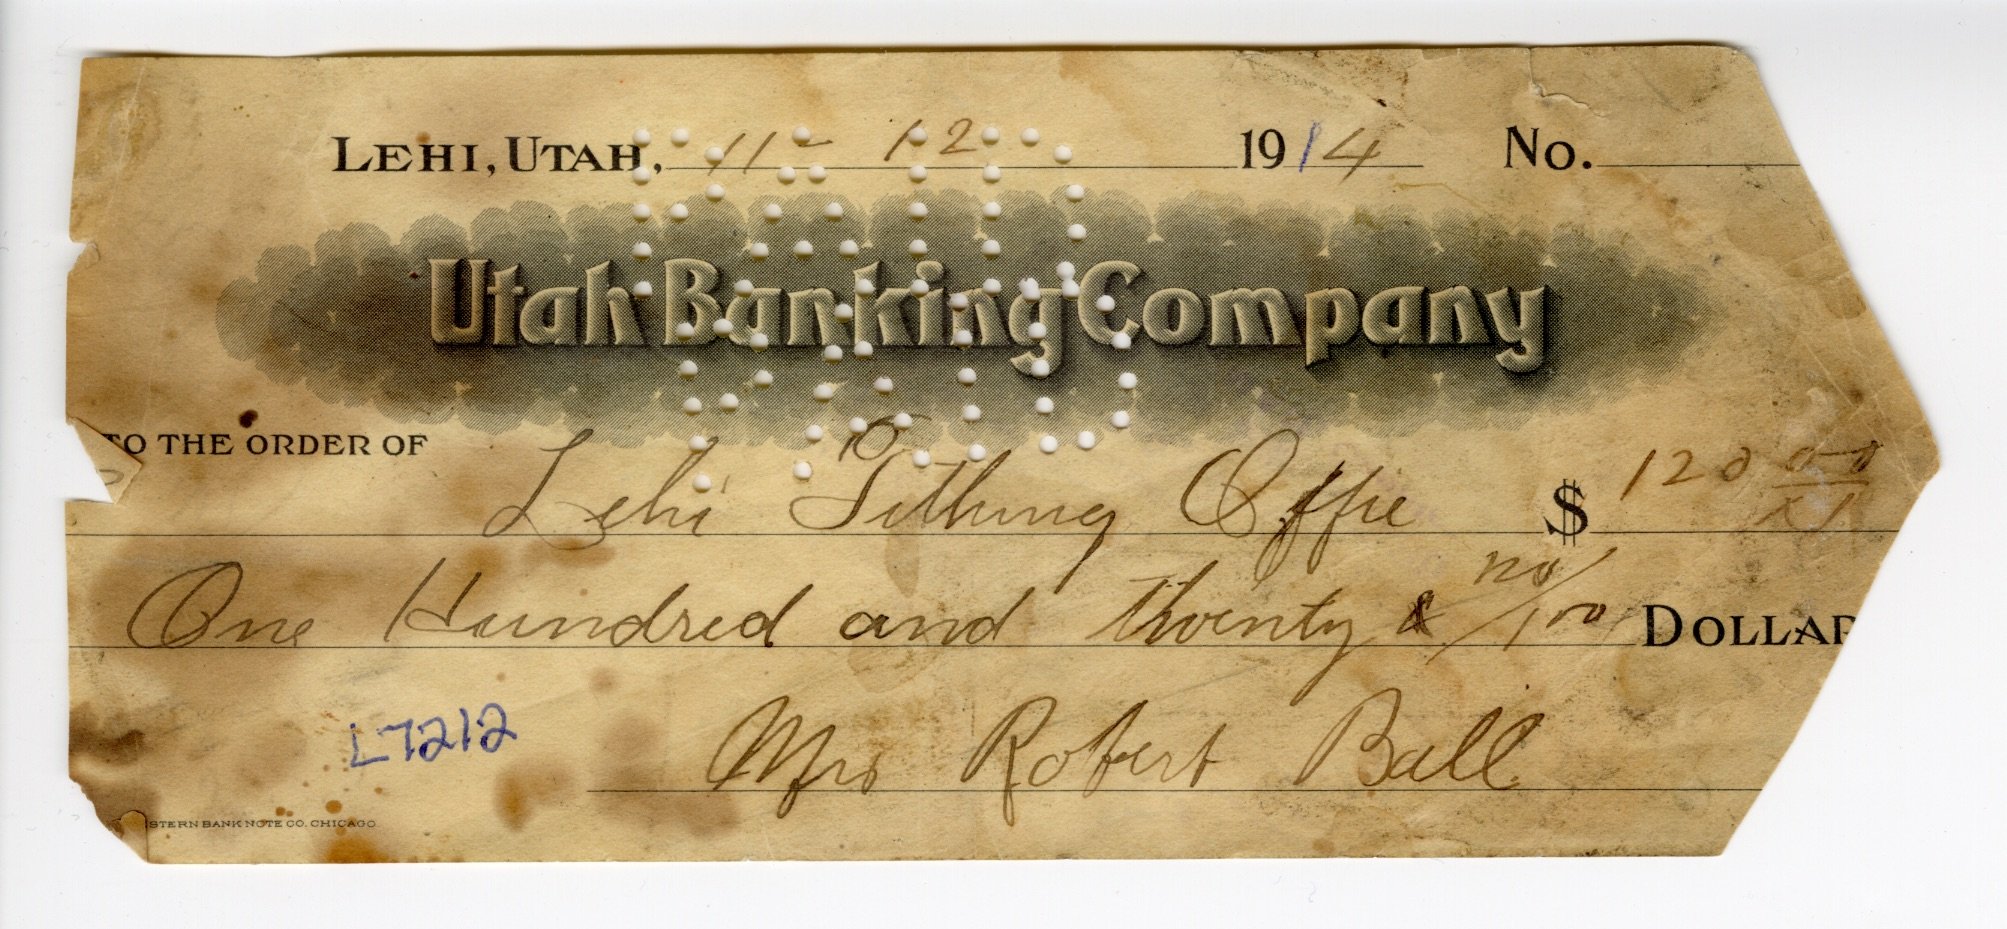 LEHI, UTAH, 11- 12 1914 No.
Utah Banking Company
TO THE ORDER OF Lehi Tithing Offie $ 120 00/xx
One Hundred and twenty & no/100 DOLLAR
L7212
Mrs Robert Ball
STERN BANK NOTE CO. CHICAGO
PAID